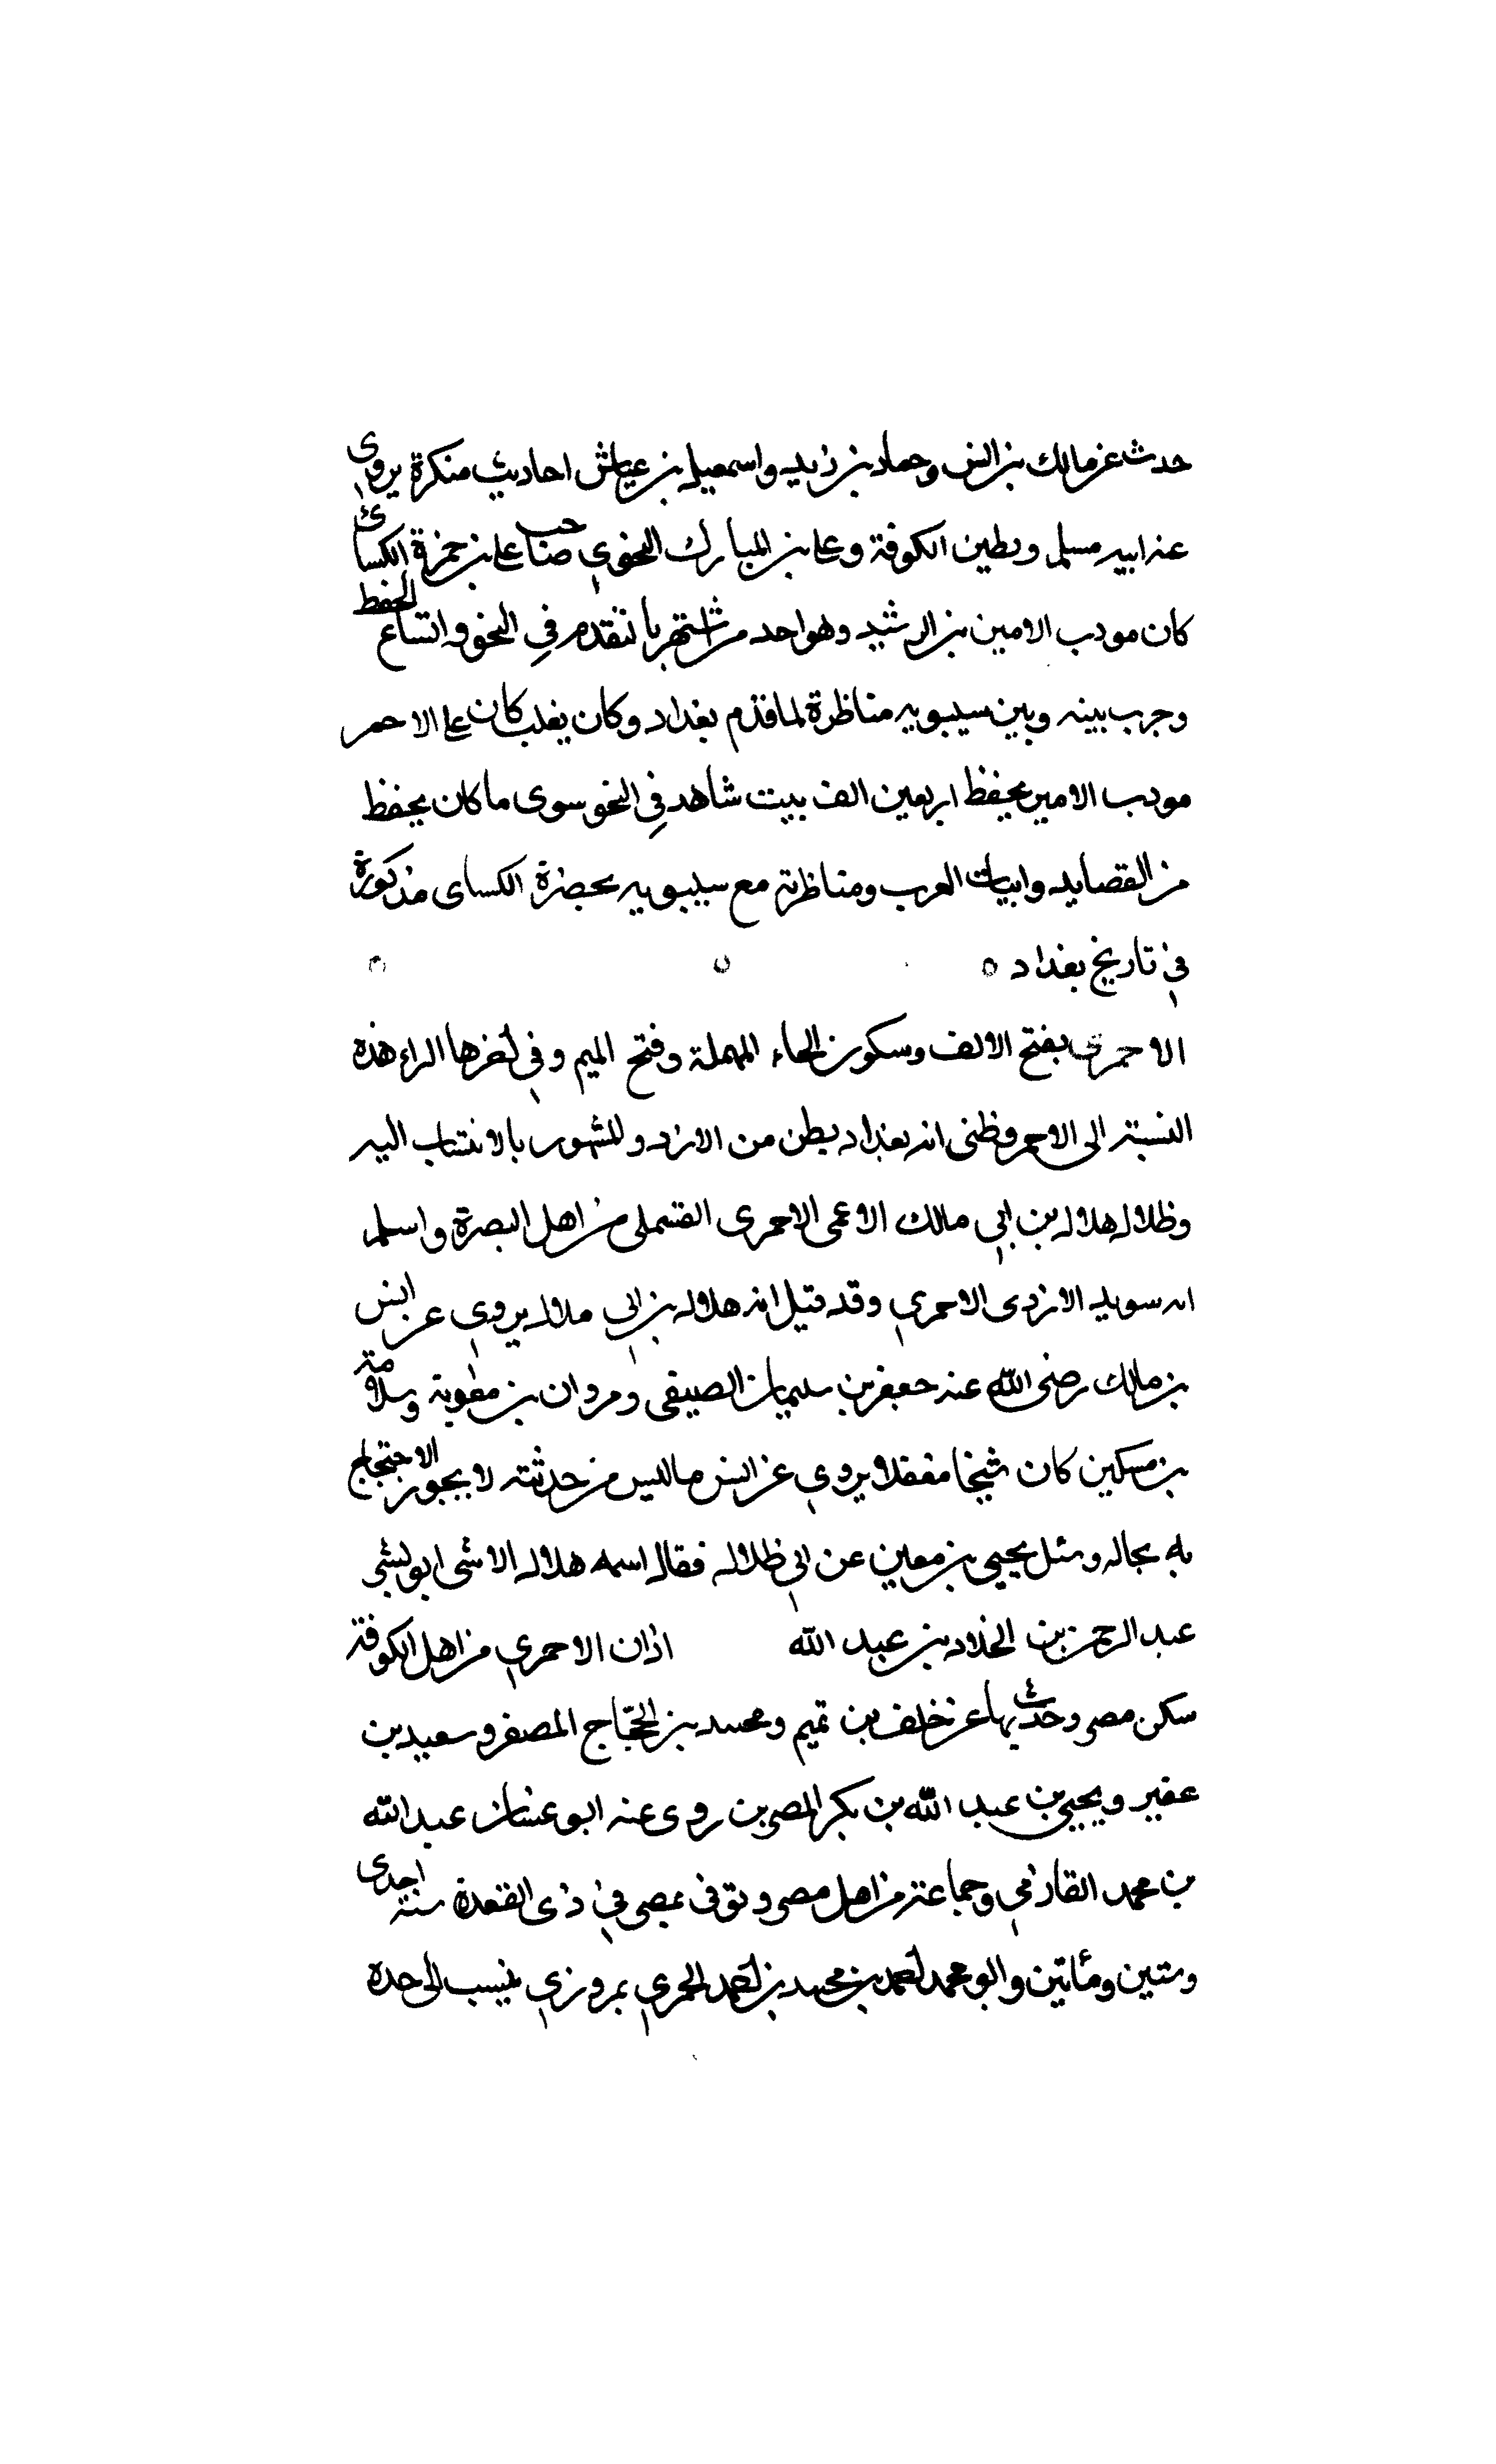 حدث عن مالك بن انس وحماد بن زيد واسمعيل بن عياش احاديث منكرة يروى
عنه ابيه مسلم ومطين الكوفة وعلى بن المبارك النحوي صاحب على بن حمزة الكسائ
كان مودب الامين بن الرشيد وهو احد من اشتهر بالتقدم في النحو واتساع الحفظ
وجرت بينه وبين سيبويه مناظرة لما قدم بغداد وكان يغلب كان على الاحمر
مودب الامين يحفظ اربعين الف بيت شاهد في النحو سوى ما كان يحفظ
من القصايد وابيات العرب ومناظرته مع سيبويه بحضرة الكساى مذكورة
في تاريخ بغداد
الاحمرى بفتح الالف وسكون الحاء المهملة وفتح الميم وفي اخرها الراء هذه
النسبة الى الاحمر وظنى انه بغداد بطن من الازد والمشهور بالانتساب اليه
وظلال هلال بن ابي مالك الاعمى الاحمرى القسملى من اهل البصرة واسلم
ابه سويد الازدى الاحمري وقد قيل انه هلال بن ابي ملال يروي عن انس
بن مالك رضى الله عنه جعفر بن سليمان الصيفى ومروان بن معوية وسلامة
بن مسكين كان شيخا مغفلا يروي عن انس ما ليس من حديثه لا يجوز الاحتجاج
به بحال وسئل يحيى بن معين عن ابي ظلال فقال اسمه هلال الاشى ابو بشى
عبد الرحمن بن الخلاد بن عبد الله اذان الاحمري من اهل الكوفة
سكن مصر وحدث بها عن خلف بن تميم ومحمد بن الحجاج المصفر وسعيد بن
عفير ويحيى بن عبد الله بن بكر المصرين روى عنه ابو عنان عبد الله
بن محمد القارمي وجماعة من اهل مصر وتوفى بمصر في ذى القعدة سنة احدى
وستين ومائتين وابو محمد احمد بن محمد بن احمد الحمري بمروزي ينسب الى حدة